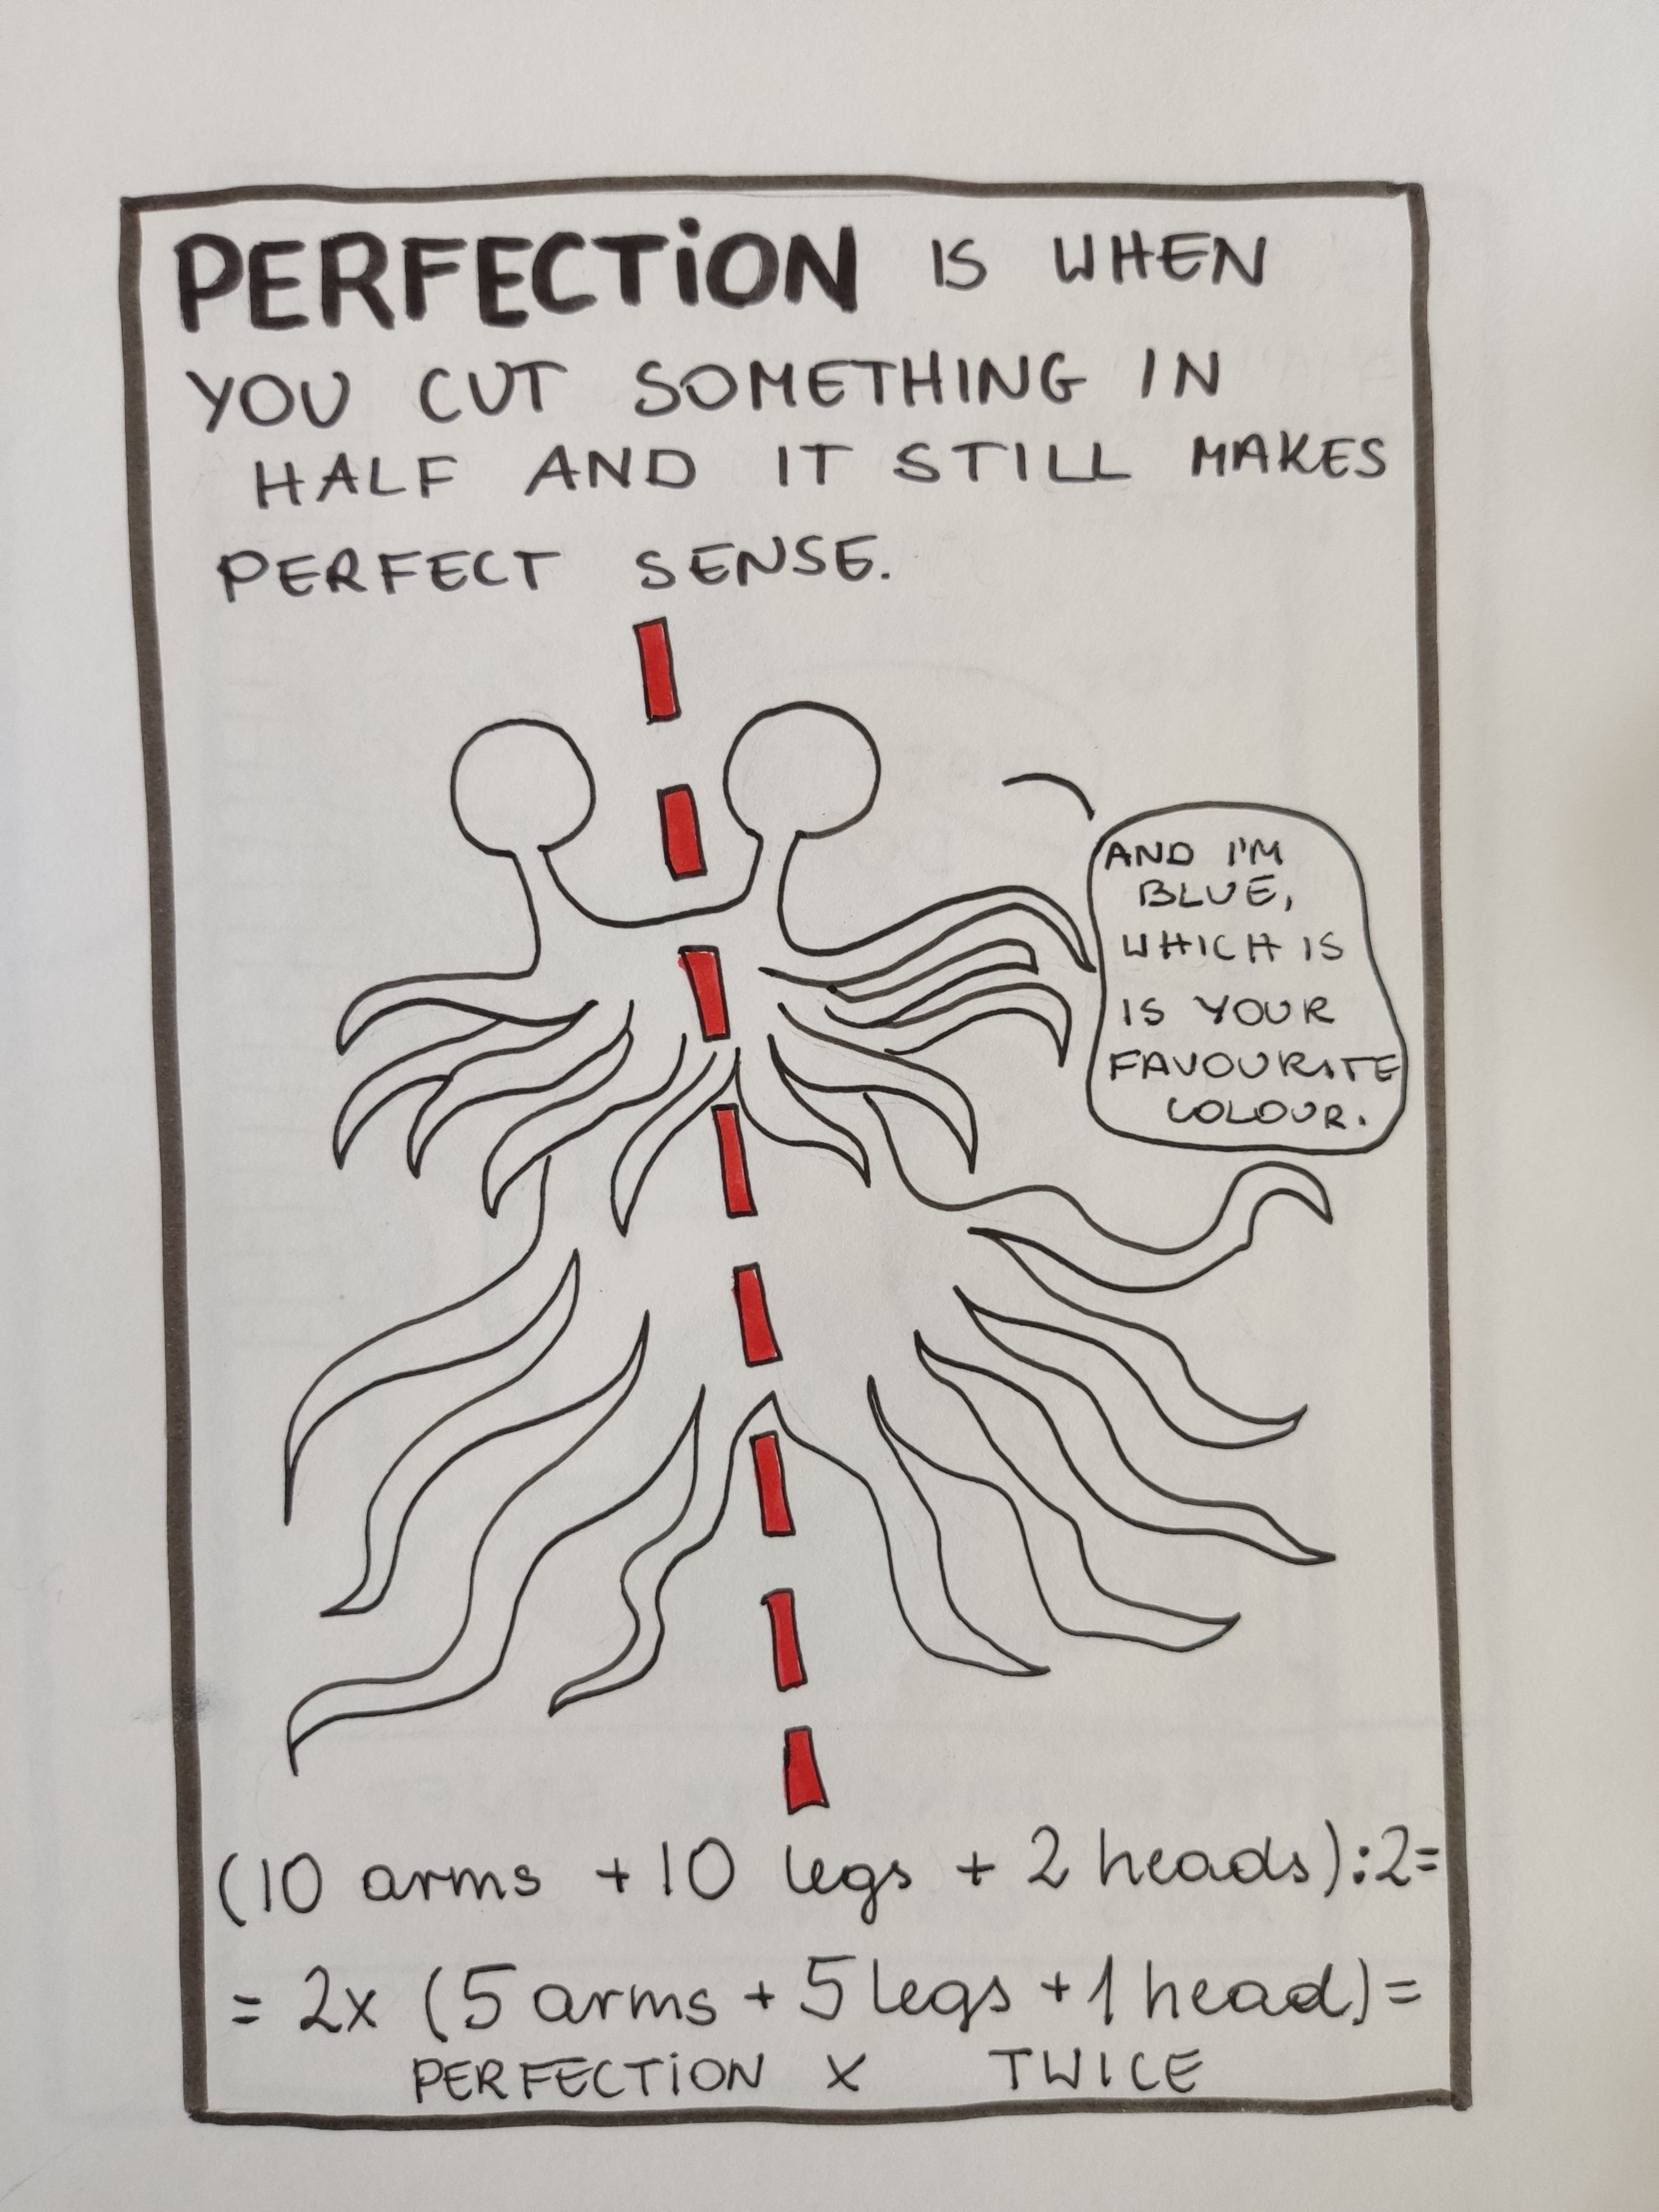 PERFECTiON IS WHEN
YOU CUT SOMETHING IN
HALF AND IT STILL MAKES
PERFECT SENSE.
AND I'M
BLUE,
WHICH IS
IS YOUR
FAVOURITE
COLOUR.
(10 arms + 10 legs + 2 heads):2=
= 2x (5 arms + 5 legs + 1 head)=
PERFECTiON X TWICE